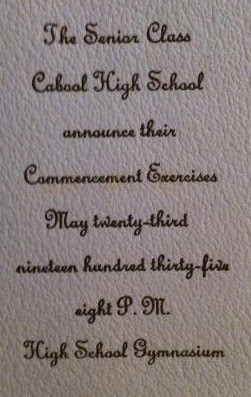 The Senior Class
Cabool High School
announce their
Commencement Exercises
May twenty-third
nineteen hundred thirty-five
eight P. M.
High School Gymnasium